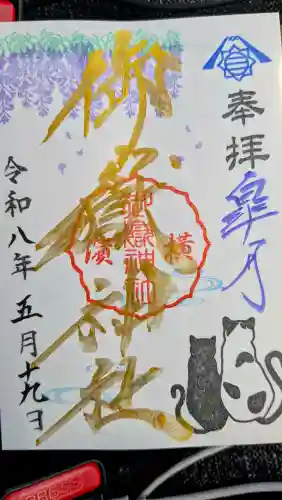 奉拝
皐月
御嶽神社
横濱
御嶽神社
令和八年五月十九日
PRESS